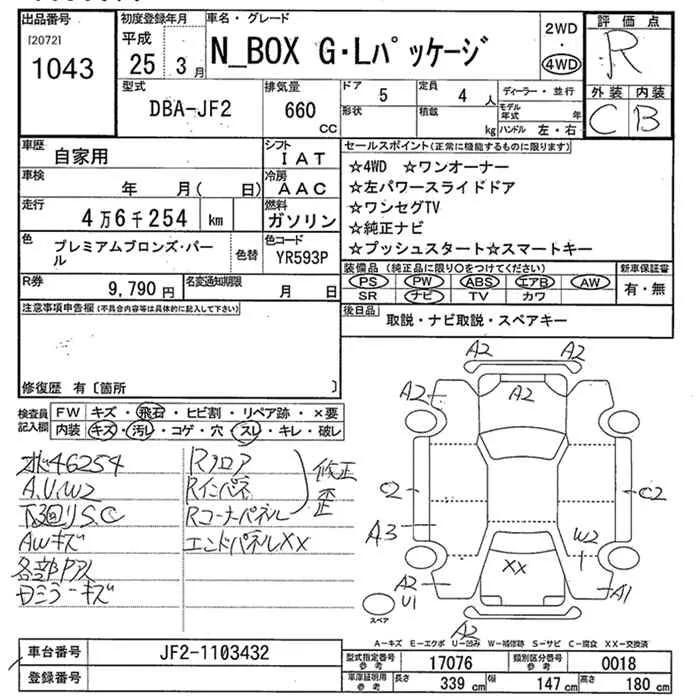 出品番号
[2072]
1043
初度登録年月
平成
25年3月
車名・グレード
N_BOX G・Lパッケージ
2WD
・
4WD
評価点
R
外装 内装
C B
型式
DBA-JF2
排気量
660
cc
ドア 5
定員 4 人
ディーラー・並行
形状
積載 kg
モデル年式 年
ハンドル 左・右
車歴
自家用
シフト
IAT
車検
年 月( 日)
冷房
AAC
走行
4万6千254 km
燃料
ガソリン
色
プレミアムブロンズ・パール
色替
色コード
YR593P
R券
9,790 円
名変通知期限
月 日
セールスポイント(正常に機能するものに限ります)
☆4WD ☆ワンオーナー
☆左パワースライドドア
☆ワンセグTV
☆純正ナビ
☆プッシュスタート☆スマートキー
装備品 (純正品に限り○をつけてください)
PS PW ABS エアB AW
SR ナビ TV カワ
新車保証書
有・無
後日品
取説・ナビ取説・スペアキー
注意事項申告欄(不具合内容は具体的に記入して下さい)
修復歴 有〔箇所 〕
検査員
記入欄
FW キズ・飛石・ヒビ割・リペア跡・×要
内装 キズ・汚レ・コゲ・穴・スレ・キレ・破レ
46254
A.U.W2
下回りS.C
AWキズ
各部
ミラーキズ
Rフロア
Rインパネ
Rコーナーパネル
修正
歪
エンドパネルXX
A2 A2
A2 A2
C2 C2
A3 W2
XX
A2
U1
A1
A2
スペア
A−キズ E−エクボ U−凹み W−補修跡 S−サビ C−腐食 XX−交換済
車台番号
JF2-1103432
登録番号
型式指定番号
参考
17076
類別区分番号
参考
0018
車庫証明用
参考
長さ 339 cm
幅 147 cm
高さ 180 cm